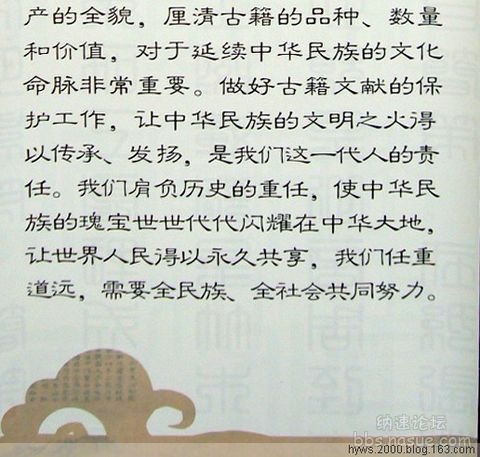 产的全貌，厘清古籍的品种、数量
和价值，对于延续中华民族的文化
命脉非常重要。做好古籍文献的保
护工作，让中华民族的文明之火得
以传承、发扬，是我们这一代人的责
任。我们肩负历史的重任，使中华民
族的瑰宝世世代代闪耀在中华大地，
让世界人民得以永久共享，我们任重
道远，需要全民族、全社会共同努力。
纳速论坛
bbs.nasue.com
hyws.2000.blog.163.com